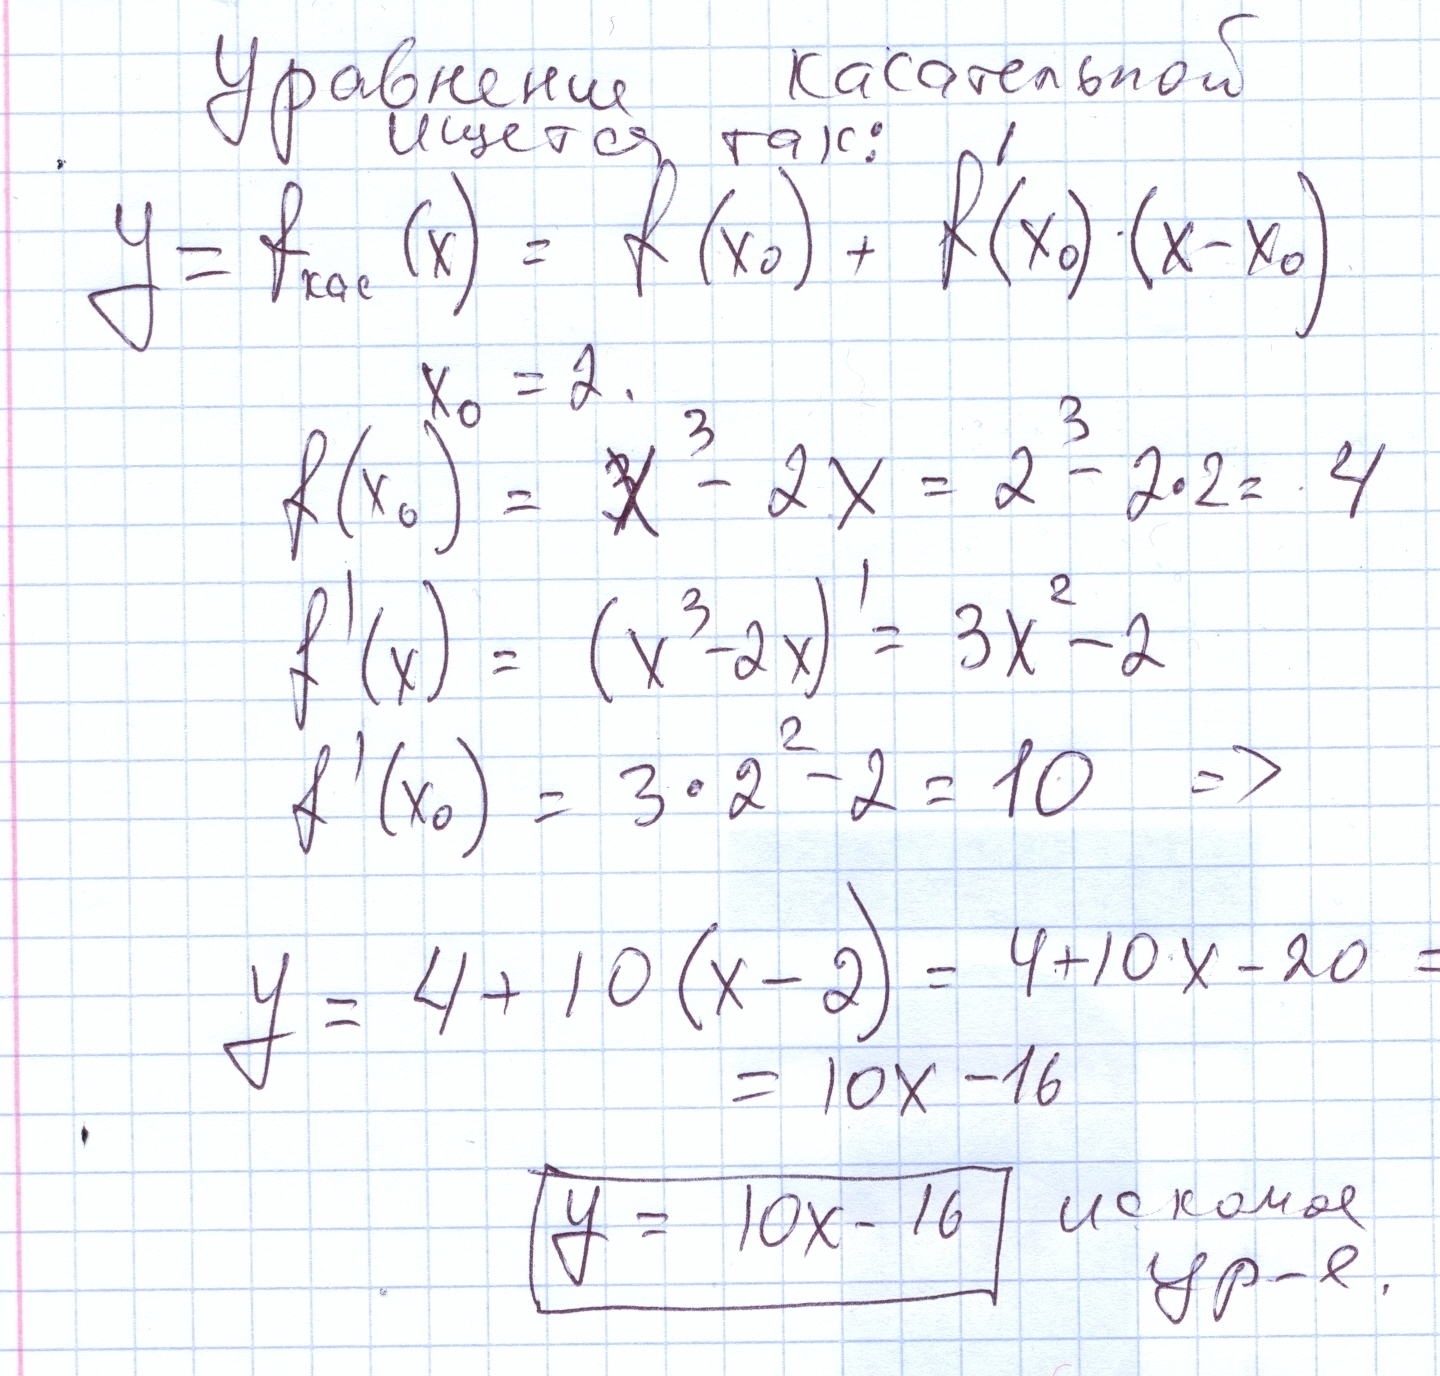 Уравнение касательной
ищется так:
y = f кас (x) = f(x₀) + f'(x₀)·(x-x₀)
x₀ = 2.
f(x₀) = x³ - 2x = 2³ - 2·2 = 4
f'(x) = (x³-2x)' = 3x² - 2
f'(x₀) = 3·2² - 2 = 10 =>
y = 4 + 10(x - 2) = 4+10x - 20 =
= 10x - 16
y = 10x - 16 искомое
ур-е.